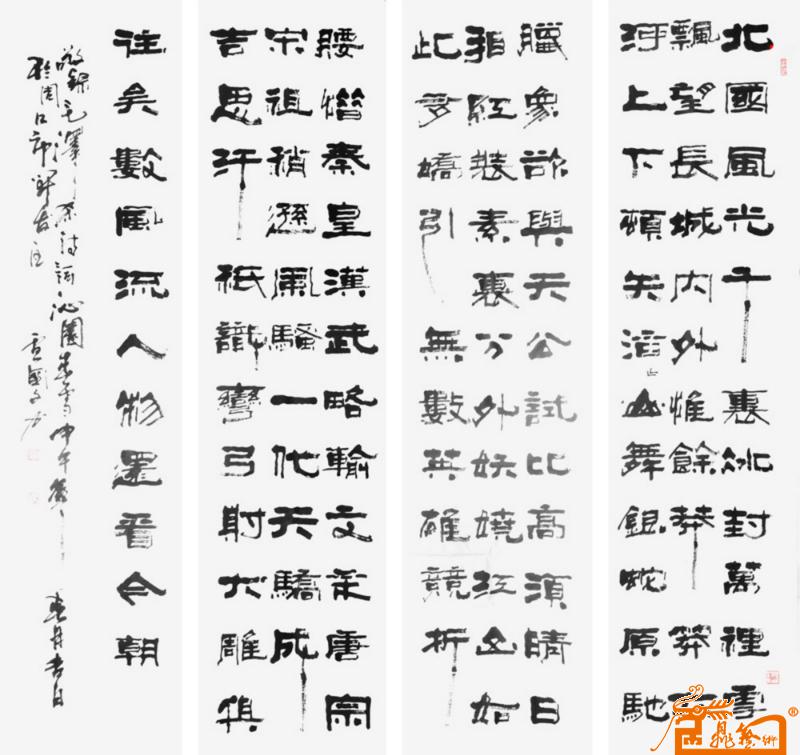 北國風光千裏冰封萬裡雪
飄望長城内外惟餘莽莽大
河上下頓失滔山舞銀蛇原馳
臘象欲與天公試比高須晴日
看紅裝素裹分外妖嬈江山如
此多嬌引無數英雄競折
腰惜秦皇漢武略輸文采唐宗
宋祖稍遜風騷一代天驕成
吉思汗祇識彎弓射大雕俱
往矣數風流人物還看今朝
敬錄毛澤東詩詞沁園春雪
於周口市